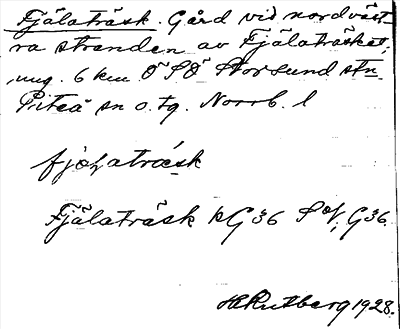 Fjälaträsk. Gård vid nordväst
ra stranden av Fjälaträsket,
ung. 6 km ÖSÖ Storsund stn
Piteå sn o. tg. Norrb. l
fjälaträsk
Fjälaträsk kG36 G36.
H Rutberg 1928.